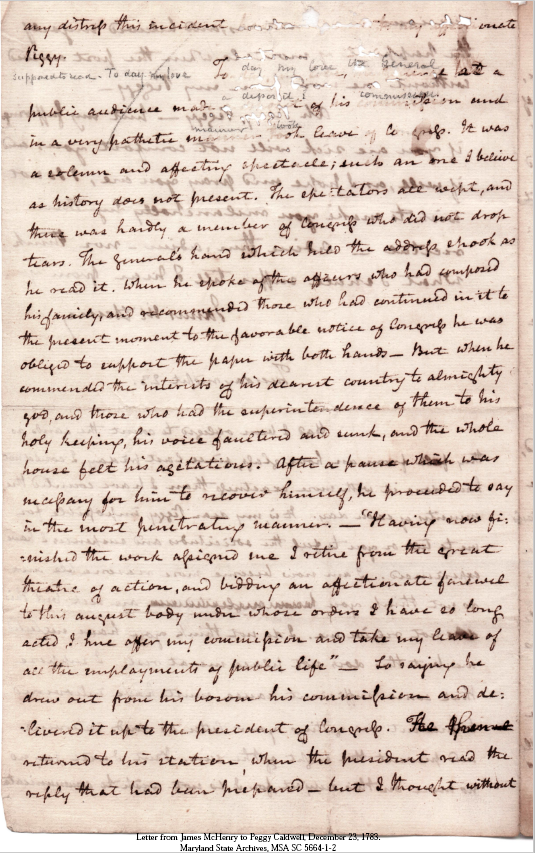 any distress this incident
Peggy.
supposed to read - To day my love
To day my love the General
at a
deposited
commission
public audience made of his commission and
manner took
in a very pathetic leave of Congress. It was
a solemn and affecting spectacle; such an one I believe
as history does not present. The spectators all wept, and
there was hardly a member of Congress who did not drop
tears. The general's hand which held the address shook as
he read it. When he spoke of the officers who had composed
his family, and recommended those who had continued in it to
the present moment to the favorable notice of Congress he was
obliged to support the paper with both hands — But when he
commended the interests of his dearest country to almighty
god, and those who had the superintendence of them to his
holy keeping, his voice faultered and sunk, and the whole
house felt his agitations. After a pause which was
necessary for him to recover himself, he proceeded to say
in the most penetrating manner. — "Having now fi:
:nished the work assigned me I retire from the great
theatre of action, and bidding an affectionate farewel
to this august body under whose orders I have so long
acted I here offer my commission and take my leave of
all the employments of public life" — So saying he
drew out from his bosom his commission and de:
:livered it up to the president of Congress. He
returned to his station, when the president read the
reply that had been prepared — but I thought without
Letter from James McHenry to Peggy Caldwell, December 23, 1783.
Maryland State Archives, MSA SC 5664-1-2